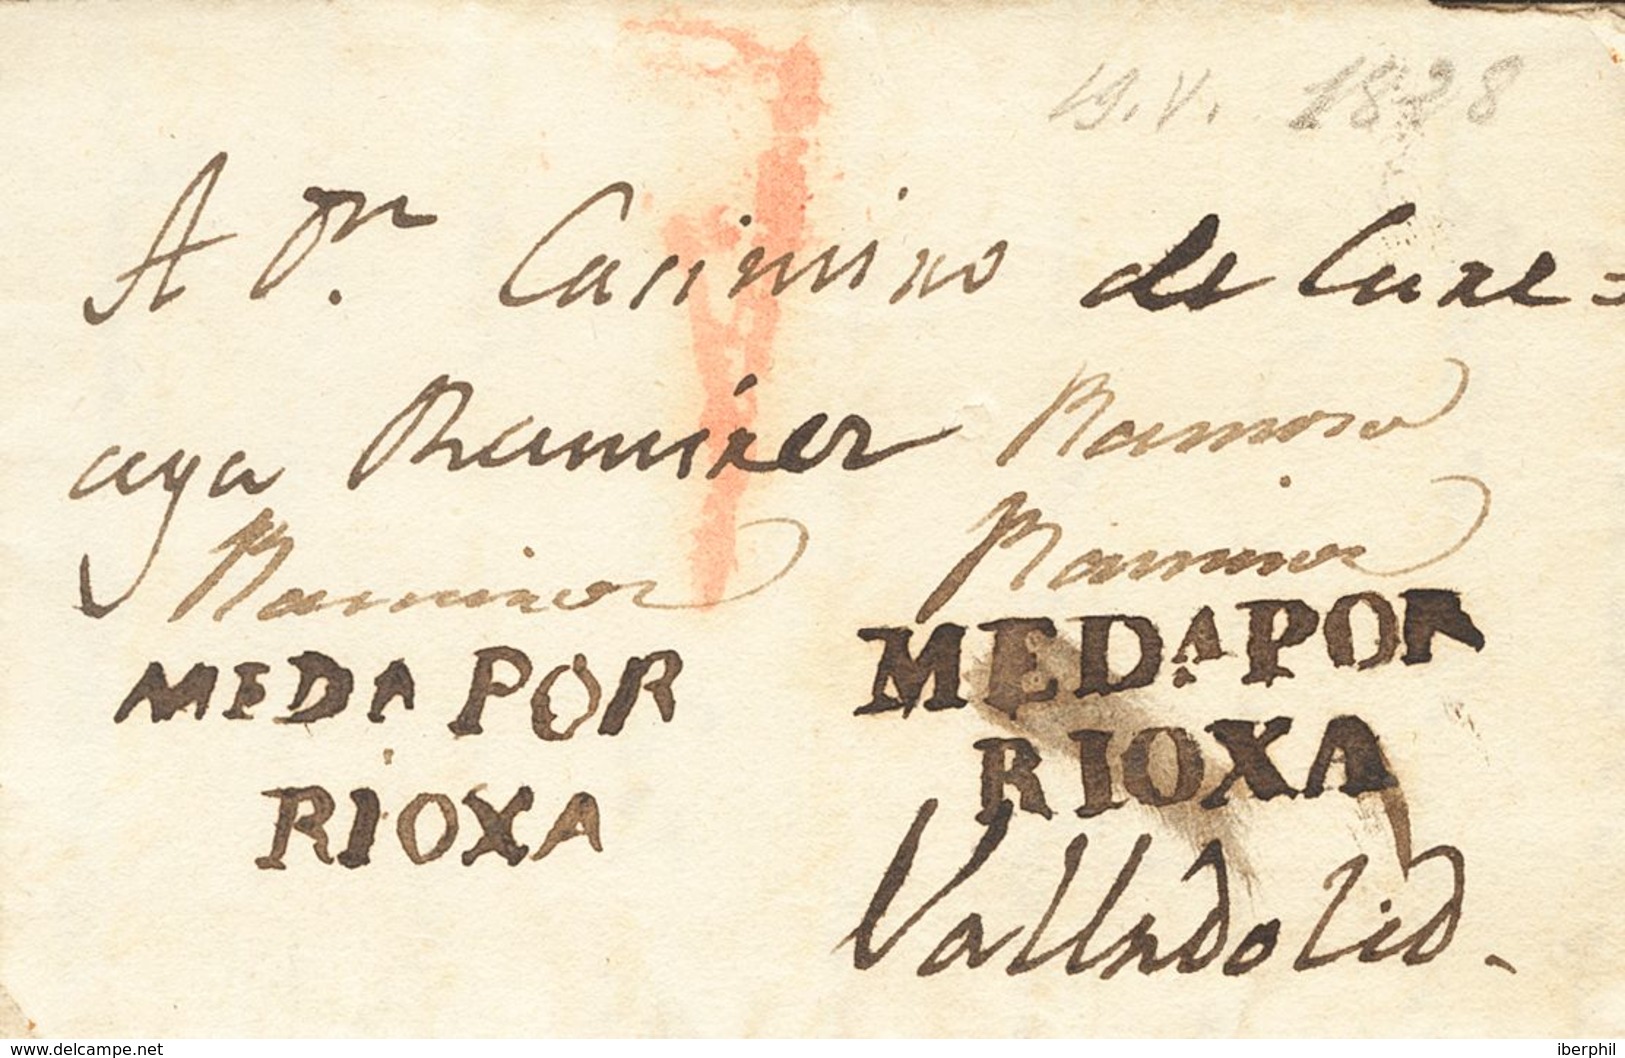 19.V. 1828
A Dn. Casimiro de Cure=
aya Ramirez Ramoro
Ramirez Ramirez
MEDA POR
RIOXA
MEDA POR
RIOXA
Valladolid.
www.delcampe.net
iberphil